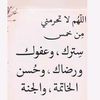 اللهم لا تحرمني
من خمس
سترك ، وعفوك
ورضاك ، وحُسن
الخاتمة ، والجنة